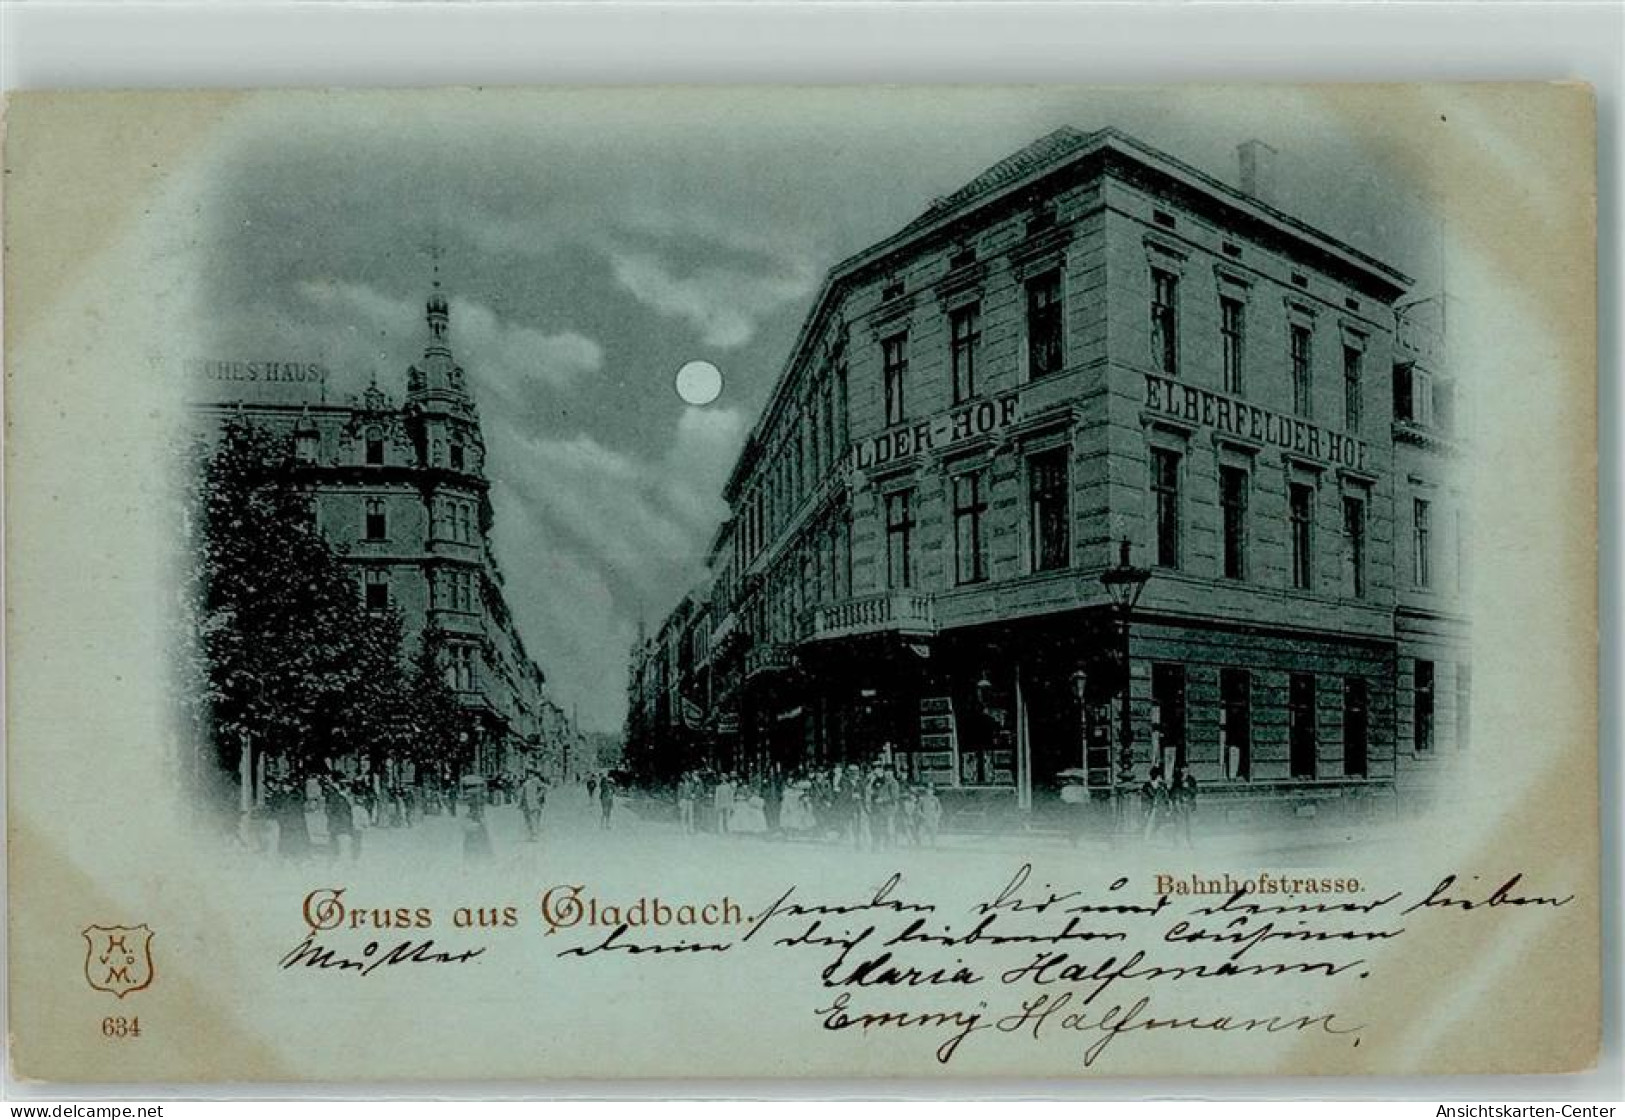 TSCHES HAUS
LDER-HOF
ELBERFELDER-HOF
Bahnhofstrasse.
Gruss aus Gladbach. senden dir und deiner lieben
Mutter deine dich liebenden Cousinen
Maria Halfmann.
Emmÿ Halfmann,
H.
v. D
M.
634
delcampe.net
posthumus
Ansichtskarten-Center